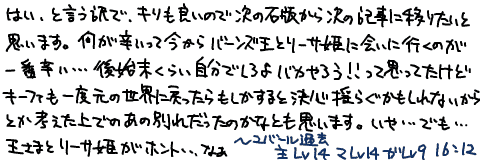 はい、と言う訳で、キリも良いので次の石版から次の記事に移りたいと
思います。何が辛いって今からバーンズ王とリーサ姫に会いに行くのが
一番辛い… 後始末くらい自分でしろよバカやろう!!って思ってたけど
キーファも一度元の世界に戻ったらもしかすると決心揺らぐかもしれないから
とか考えた上でのあの別れだったのかなとも思います。いや…でも…
王さまとリーサ姫がホント…なぁ
～ユバール過去
主Lv14 マLv14 ガLv9 16:12